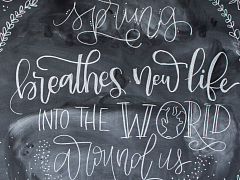 spring
breathes new life
INTO THE WORLD
around us